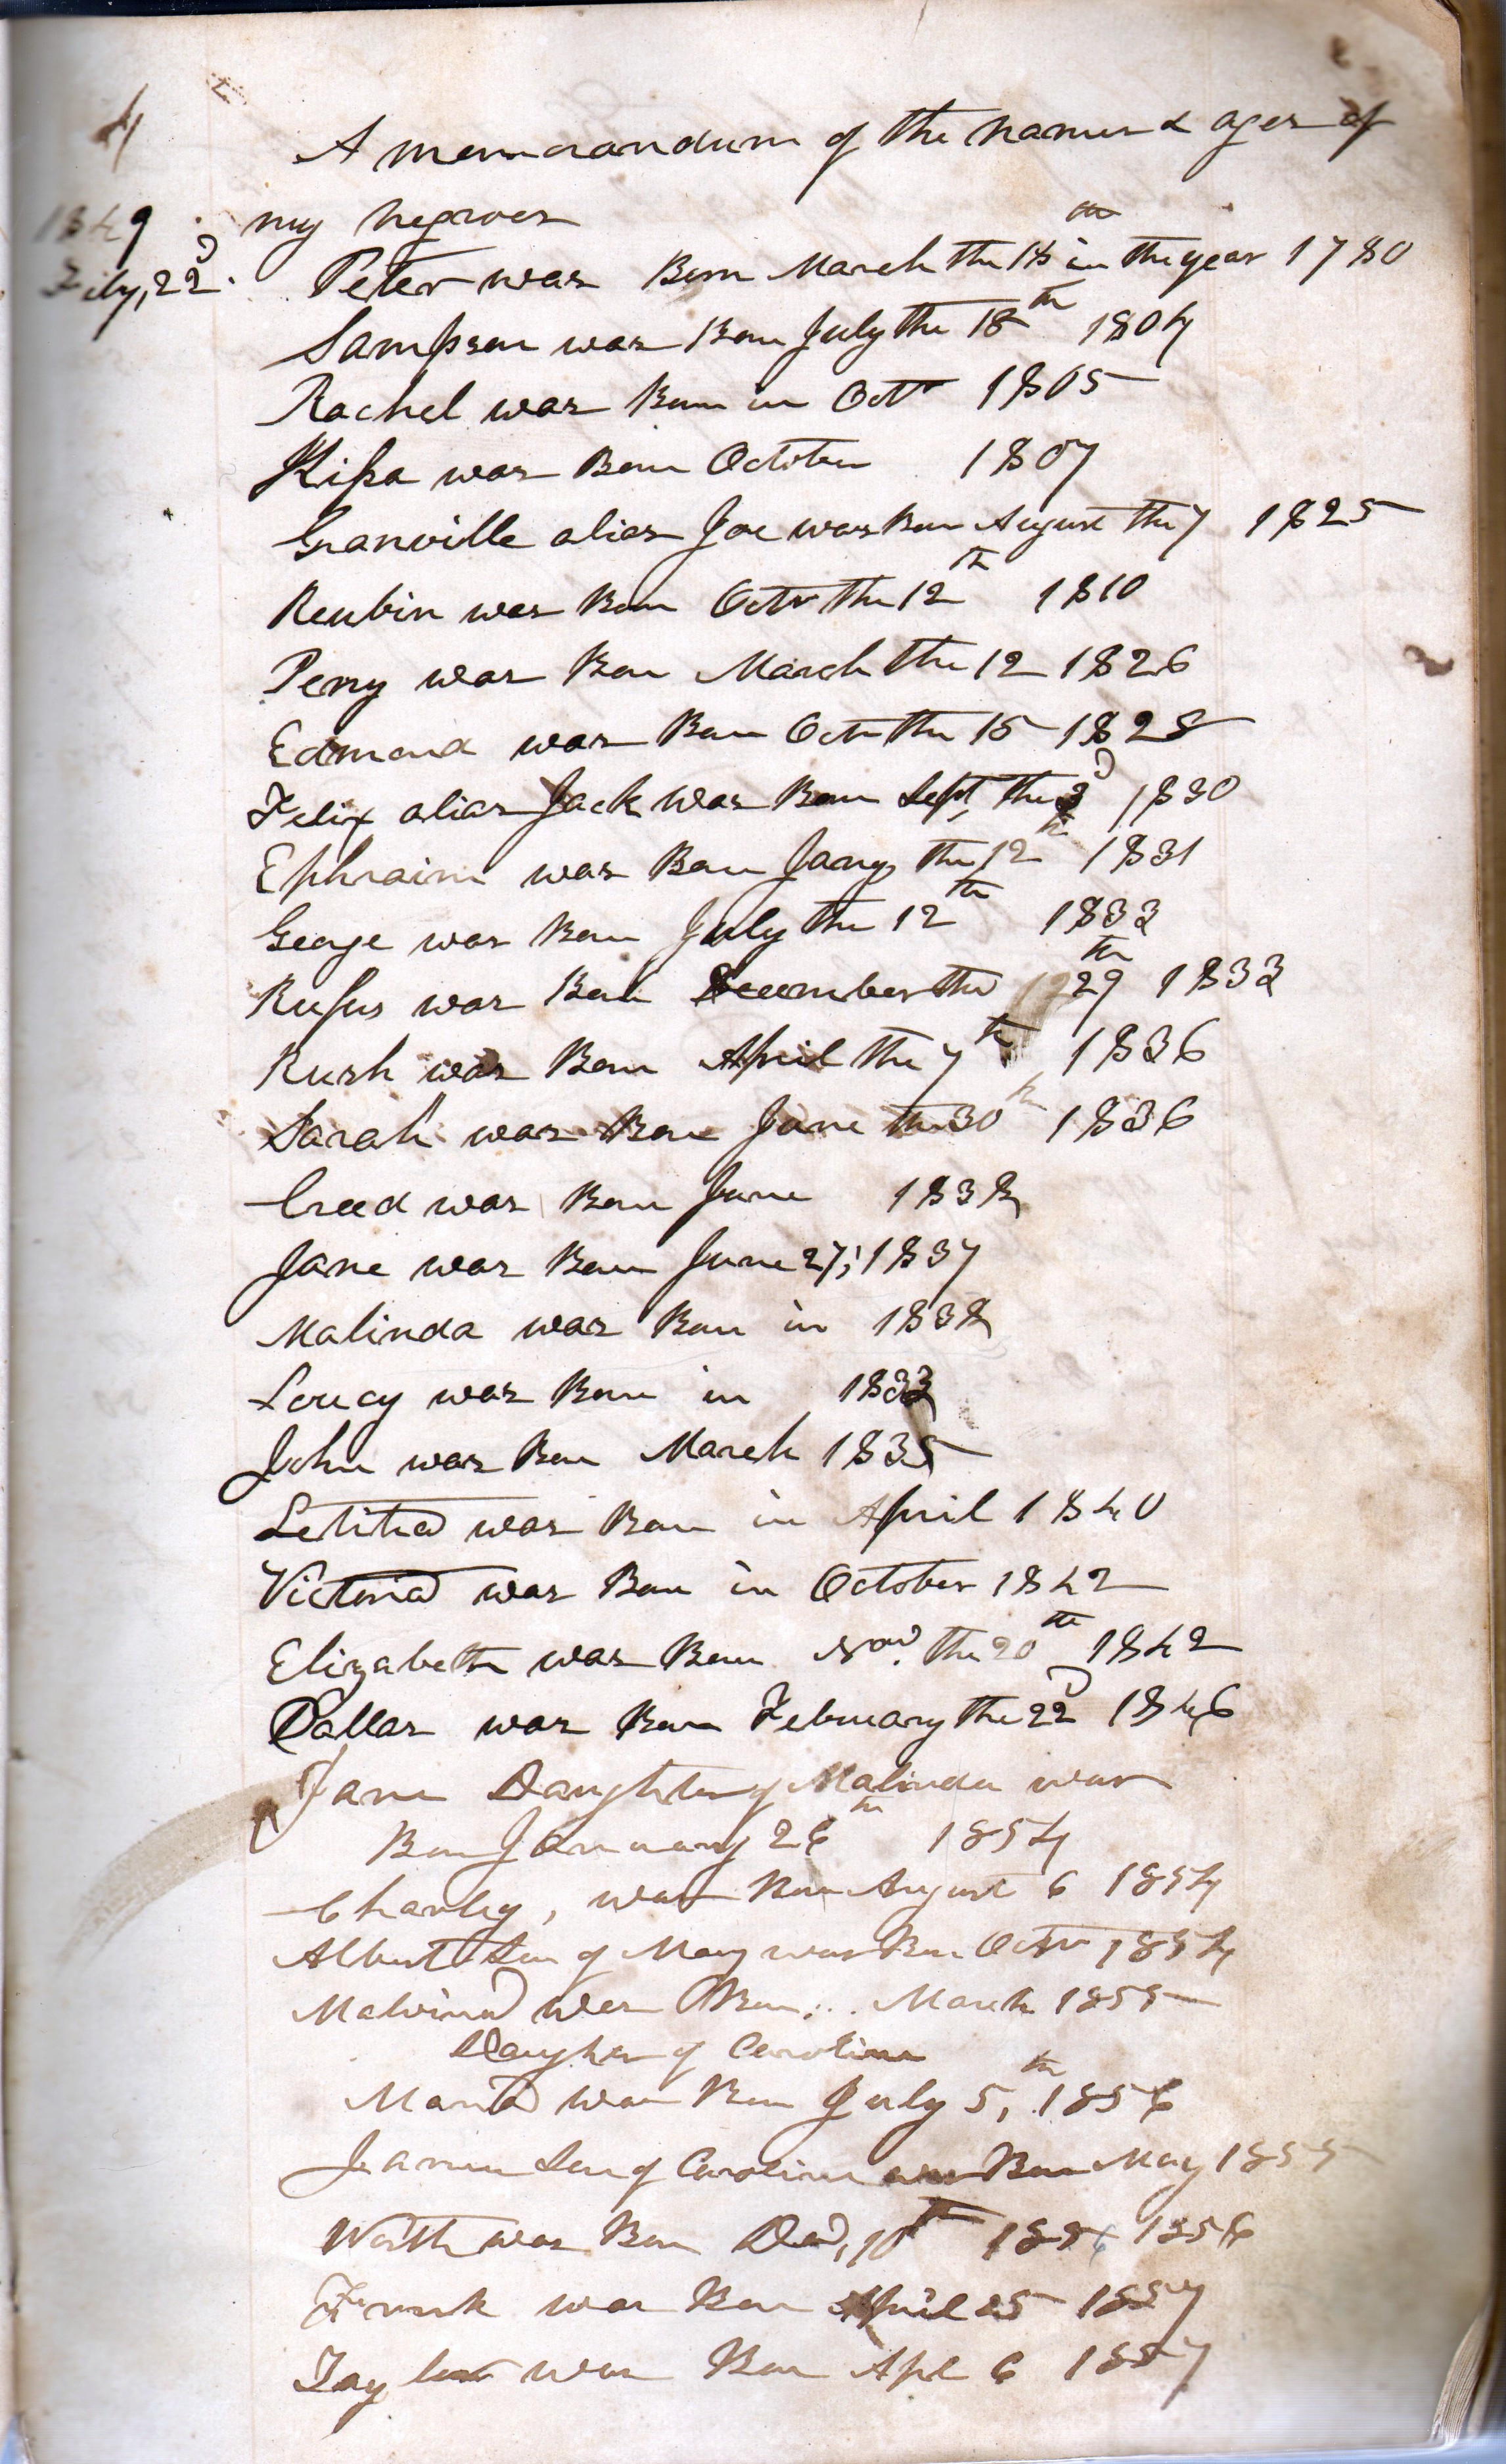 4
A memorandum of the names & ages of
1849 my negroes
22d Peter was Born March the 18th in the year 1780
Sampson was Born July the 18th 1804
Rachel was Born in Octr 1805
was Born October 1807
Granville alias Joe was Born August the 7 1825
Reubin was Born Octr the 12th 1810
Perry was Born March the 12 1826
Edmond was Born Octr the 15 1828
Felix alias Jack was Born Sept, the 3d 1830
Ephraim was Born Jany the 12th 1831
George was Born July the 12th 1833
Rufus was Born December the 29th 1833
Rush was Born April the 7th 1836
Sarah was Born June the 30th 1836
Creed was Born June 1838
Jane was Born June 27, 1837
Malinda was Born in 1838
Loucy was Born in 1833
John was Born March 1835
Letitia was Born in April 1840
Victoria was Born in October 1842
Elizabeth was Born Nov. the 20th 1842
Dallas was Born February the 22d 1846
Jane Daughter of Malinda was
Born January 26th 1854
Charley, was Born August 6 1854
Albert Son of Mary was Born Octr 1854
Malvina was Born... March 1855
Daugher of Caroline
Maria was Born July 5th, 1856
Son of Caroline was Born May 1855
Worth was Born Dec, 10th 1856 1856
Frank was Born April 25 1857
Taylor was Born Apl 6 1857